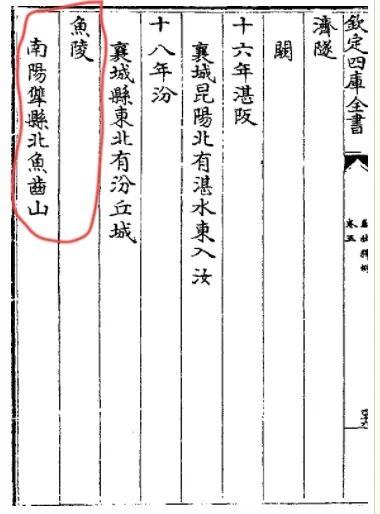 欽定四庫全書
卷五
濟隧
闕
十六年湛阪
襄城昆陽北有湛水東入汝
十八年汾
襄城縣東北有汾丘城
魚陵
南陽犨縣北魚齒山